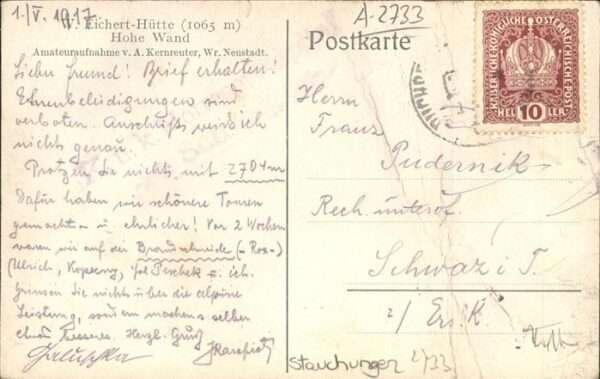 1./V. 1917.
W. Eichert-Hütte (1065 m)
Hohe Wand
Amateuraufnahme v. A. Kernreuter, Wr. Neustadt.
Lieber Freund! Brief erhalten!
Ehrenbeleidigungen sind
verboten. Anschrift, weiß ich
nichts genau.
Protzen Sie nichts mit 2704m
Dafür haben wir schönere Touren
gemacht u. ehrlicher! Vor 2 Wochen
waren wir auf der (- Rax-)
(Ulrich, Kopecny, Peschek u. ich.
Grinsen Sie nichts über die alpine
Leistung, sondern machen s selber
etwas Besseres. Herzl. Gruß
A-2733
Postkarte
KAISERLICHE KÖNIGLICHE ÖSTERREICHISCHE POST
HELLER 10
Herrn
Franz
Pudernik
Rech. unterof.
Schwaz i T.
2/ Ers. K
Stauchungen 2733